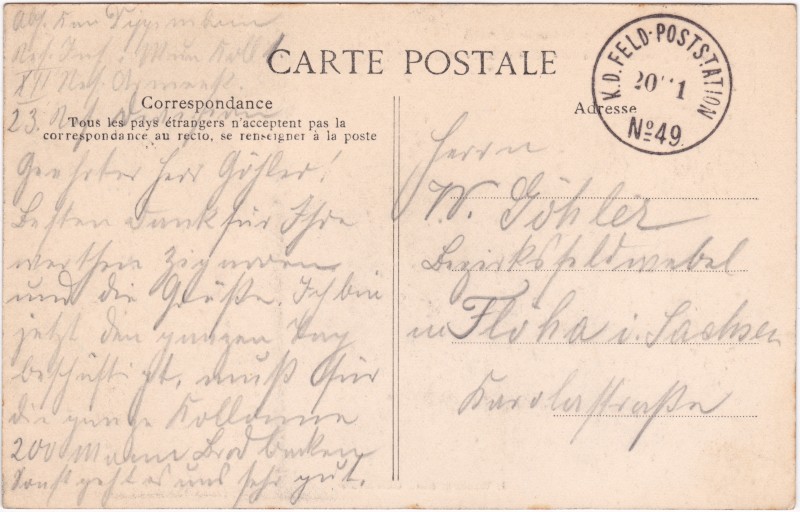 Abs. Kan
Res. Inf. Mun Kol
XII Res. Armeek.
23. Res.
CARTE POSTALE
Correspondance
Tous les pays étrangers n'acceptent pas la
correspondance au recto, se renseigner à la poste
Geehrter Herr Göhler!
Besten Dank für Ihre
werthen Zigarren
und die Grüße. Ich bin
jetzt den ganzen Tag
beschäftigt, muß für
die ganze Kollonne
200 Mann Brod backen
Sonst geht es uns sehr gut.
K.D. FELD-POSTSTATION
20 1
No 49.
Adresse
Herrn
W. Göhler
Bezirksfeldwebel
in Flöha i. Sachsen
Karolastraße